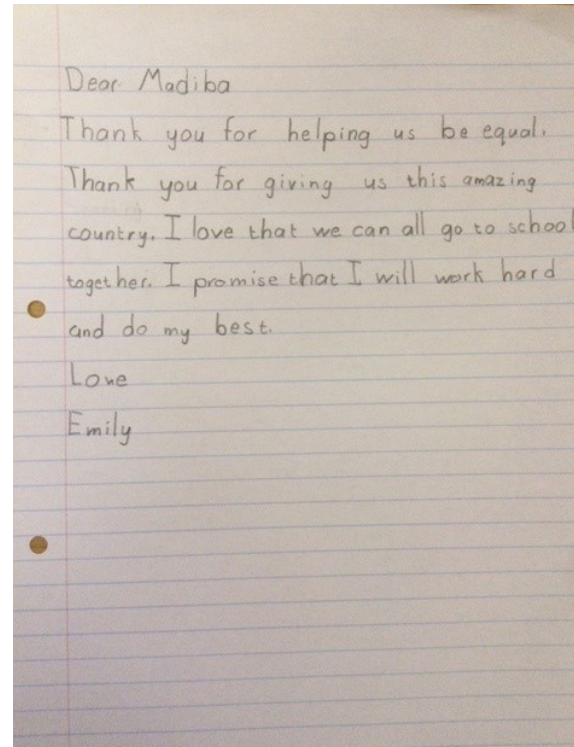 Dear Madiba
Thank you for helping us be equal.
Thank you for giving us this amazing
country. I love that we can all go to school
together. I promise that I will work hard
and do my best.
Love
Emily